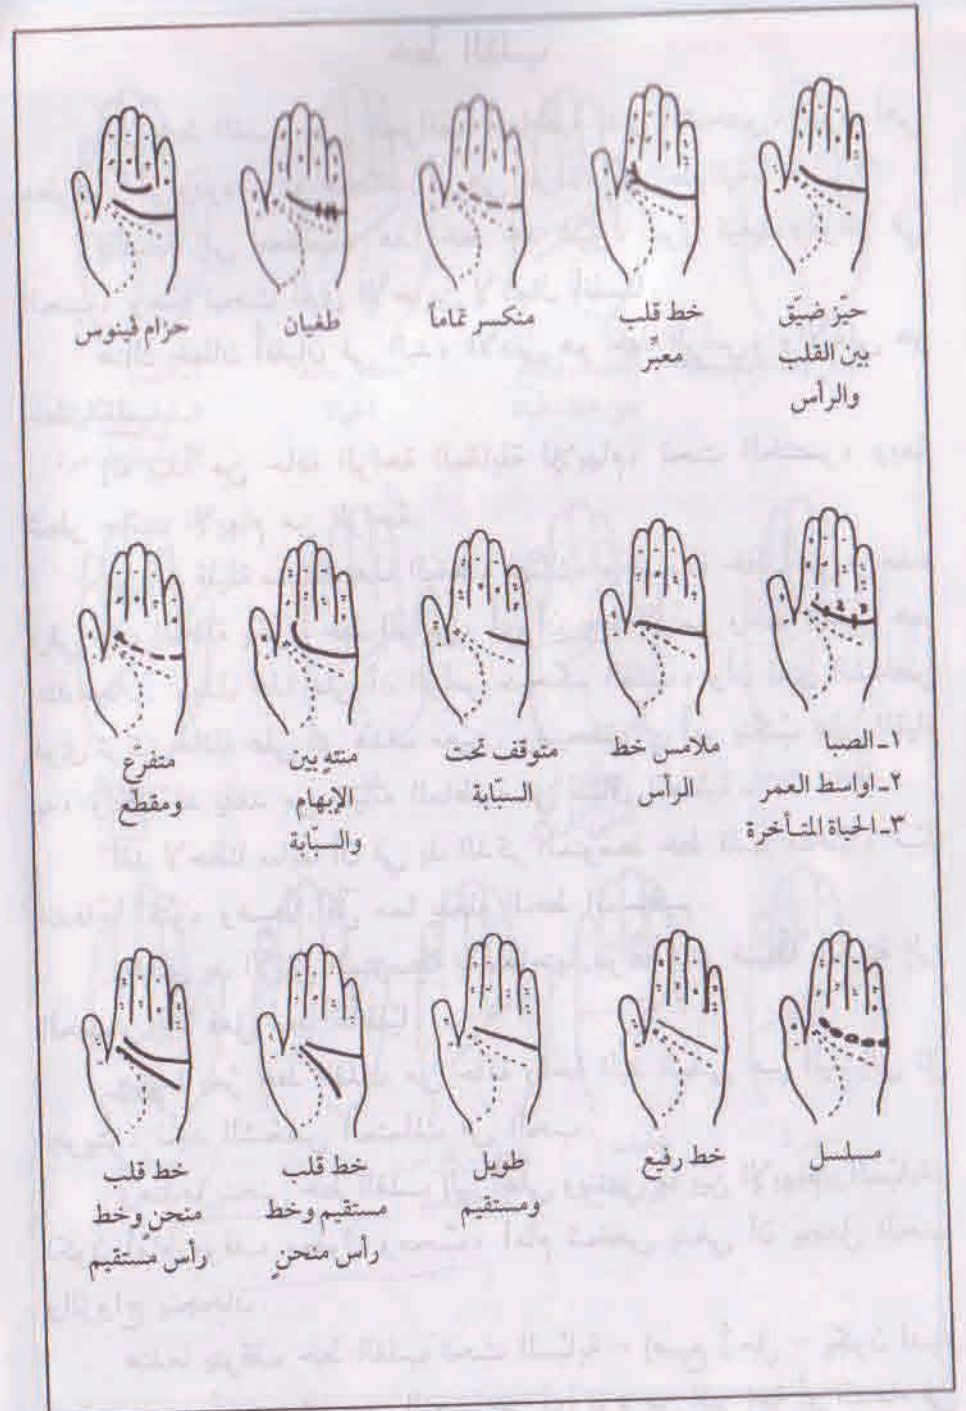 حيّز ضيّق
بين القلب
والرأس
خط قلب
معبّر
منكسر تماماً
طغيان
حزام ڤينوس
١ـ الصبا
٢ـ اواسط العمر
٣ـ الحياة المتأخرة
ملامس خط
الرأس
متوقف تحت
السبّابة
منتهٍ بين
الإبهام
والسبّابة
متفرّع
ومقطّع
مسلسل
خط رفيع
طويل
ومستقيم
خط قلب
مستقيم وخط
رأس منحنٍ
خط قلب
منحنٍ وخط
رأس مستقيم